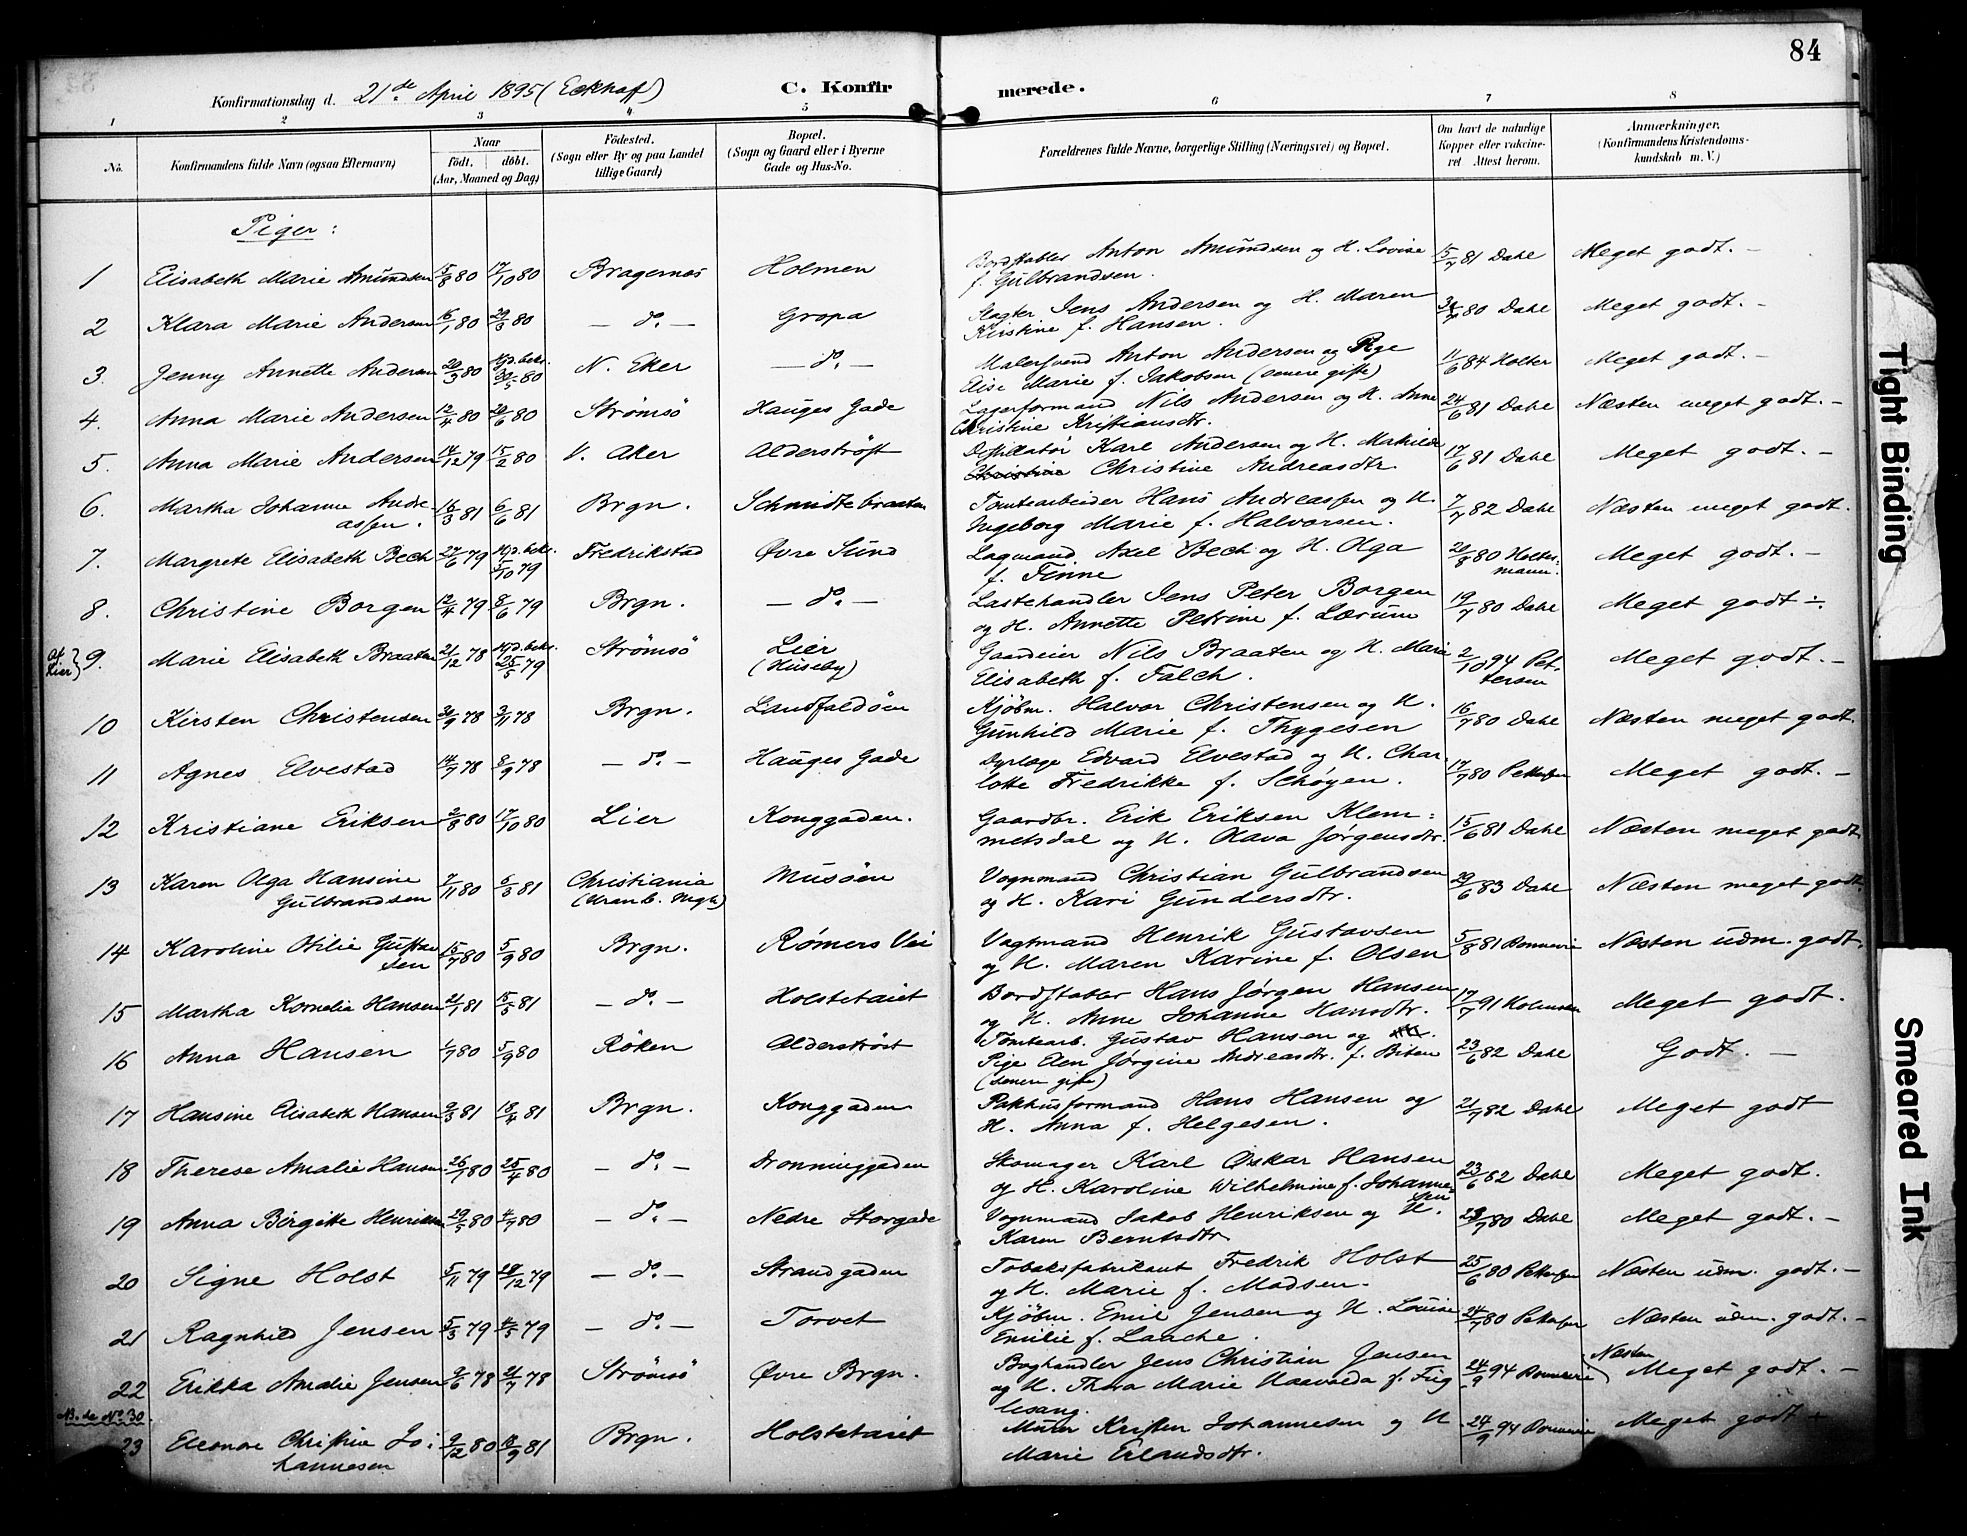 84
Konfirmationsdag d. 21de April 1895 (Eckhoff) C. Konfir merede.
1 2 3 4 5 6 7 8
No. Konfirmandens fulde Navn (ogsaa Efternavn) Naar født. døbt. (Aar, Maaned og Dag) Fødested. (Sogn eller By og paa Landet tillige Gaard) Bopæl. (Sogn og Gaard eller i Byerne Gade og Hus-No. Forældrenes fulde Navne, borgerlige Stilling (Næringsvei) og Bopæl. Om havt de naturlige Kopper eller vaccineret. Attest herom. Anmærkninger. (Konfirmandens Kristendomskundskab m. V.)
Piger:
1 Elisabeth Marie Amundsen 15/8 80 17/10 80 Bragernæs Holmen Bordstabler Anton Amundsen og H. Lovise 15/7 81 Dahl Meget godt. -
f. Gulbrandsen.
2 Klara Marie Andersen 16/1 80 29/3 80 - do. - Gropa Slagter Jens Andersen og H. Maren 80 Dahl Meget godt. -
Kirstine f. Hansen.
3. Jenny Annette Andersen 20/3 80 Hjd. bekr. 30/5 80 N. Eker - do. - Malersvend Anton Andersen og Pige 11/6 84 Holter Meget godt. -
Elise Marie f. Jakobsen (senere gifte)
4. Anna Marie Andersen 12/4 80 20/6 80 Strømsø Hauges Gade Lagerformand Nils Andersen og H. Anne 24/6 81 Dahl Næsten meget godt. -
Christine Kristiansdtr.
5. Anna Marie Andersen 14/12 79 15/2 80 V. Aker Alderstrøst Destillatør Karl Andersen og H. Mathilde 17/6 81 Dahl Meget godt. -
Christine Christine Andreasdtr.
6. Martha Johanne Andre- 16/3 81 6/6 81 Brgn. Schmidtebraaten Tomtearbeider Hans Andreassen og H. 7/7 82 Dahl Næsten meget godt.
assen. Ingeborg Marie f. Halvorsen.
7. Margrete Elisabeth Bech 27/6 79 Hjd. bekr. 5/10 79 Fredrikstad Øvre Sund Lagmand Axel Bech og H. Olga 20/8 80 Holter- Meget godt. -
f. Finne mann.
8. Christine Borgen 12/4 79 8/6 79 Brgn. - do. - Lastehandler Jens Peter Borgen 19/7 80 Dahl Meget godt ÷.
og H. Annette Petrine f. Lærum
af Lier} 9. Marie Elisabeth Braaten 21/12 78 Hjd. bekr. 25/5 79 Strømsø Lier Gaardeier Nils Braaten og H. Marie 2/10 94 Pet- Meget godt. -
(Huseby) Elisabeth f. Falch. tersen
10 Kirsten Christensen 30/9 78 3/11 78 Brgn. Landfaldøen Kjøbm. Halvor Christensen og H. 16/7 80 Dahl Næsten meget godt.
Gunhild Marie f. Thygesen
11 Agnes Elvestad 14/7 78 8/9 78 - do. - Hauges Gade Dyrlæge Edvard Elvestad og H. Char- 17/7 80 Pettersen Meget godt. -
lotte Fredrikke f. Schøyen.
12 Kristiane Eriksen 2/8 80 17/10 80 Lier Konggaden. Gaardbr. Erik Eriksen Klem- 15/6 81 Dahl Næsten meget godt.
metsdal og H. Olava Jørgensdtr.
13 Karen Olga Hansine 7/11 80 6/3 81 Christiania Musøen Vognmand Christian Gulbrandsen 29/6 83 Dahl Næsten meget godt.
Gulbrandsen (Uranb. Mgh) og H. Kari Gundersdtr.
14 Karoline Otilie Gustav- 15/7 80 5/9 80 Brgn. Rømers Vei Vagtmand Henrik Gustavsen 5/8 81 Ronnevie Næsten udm. godt.
sen og H. Maren Karine f. Olsen
15 Martha Kornelia Hansen 21/1 81 15/5 81 - do. - Holstetaiet Bordstabler Hans Jørgen Hansen 17/7 91 Holmsen Meget godt.
og H. Anne Johanne Hansdtr.
16 Anna Hansen 1/7 80 5/9 80 Røken Alderstrøst Tomtearb. Gustav Hansen og 23/6 82 Dahl Godt. -
Pige Elen Jørgine Andreasdtr. f. Biten
(senere gifte)
17 Hansine Elisabeth Hansen 9/3 81 18/4 81 Brgn. Konggaden Pakhusformand Hans Hansen og 21/7 82 Dahl Meget godt
H. Anna f. Helgesen.
18 Therese Amalie Hansen 26/1 80 25/4 80 - do. - Dronninggaden Skomager Karl Oskar Hansen 23/6 82 Dahl Meget godt.
og H. Karoline Wilhelmine f. Johanne-
sen
19 Anna Birgitte Henriksen 29/5 80 4/7 80 - do. - Nedre Storgade Vognmand Jakob Henriksen og H. 80 Dahl Meget godt. -
Karen Berntsdtr
20 Signe Holst 5/11 79 28/12 79 - do. - Strandgaden Tobaksfabrikant Fredrik Holst 25/6 80 Pettersen Næsten udm. godt. -
og H. Marie f. Madsen.
21 Ragnhild Jensen 5/3 79 4/5 79 - do. - Torvet Kjøbm. Emil Jensen og H. Louise 24/7 80 Pettersen Næsten udm. godt. -
Emilie f. Laache.
22 Erikka Amalie Jensen 9/6 78 21/7 78 Strømsø Øvre Brgn. Boghandler Jens Christian Jensen 24/9 94 Ronnevie Næsten Meget godt. -
og H. Thora Marie Haavarda f. Fug-
lesang.
NB. se No. 30.
23 Eleonore Christine Jo- 9/12 80 18/9 81 Brgn. Holstetaiet Murer Kristen Johannesen og H 24/9 94 Ronnevie Meget godt +
hannesen Marie Erlandsdtr.
Tight Binding
Smeared Ink